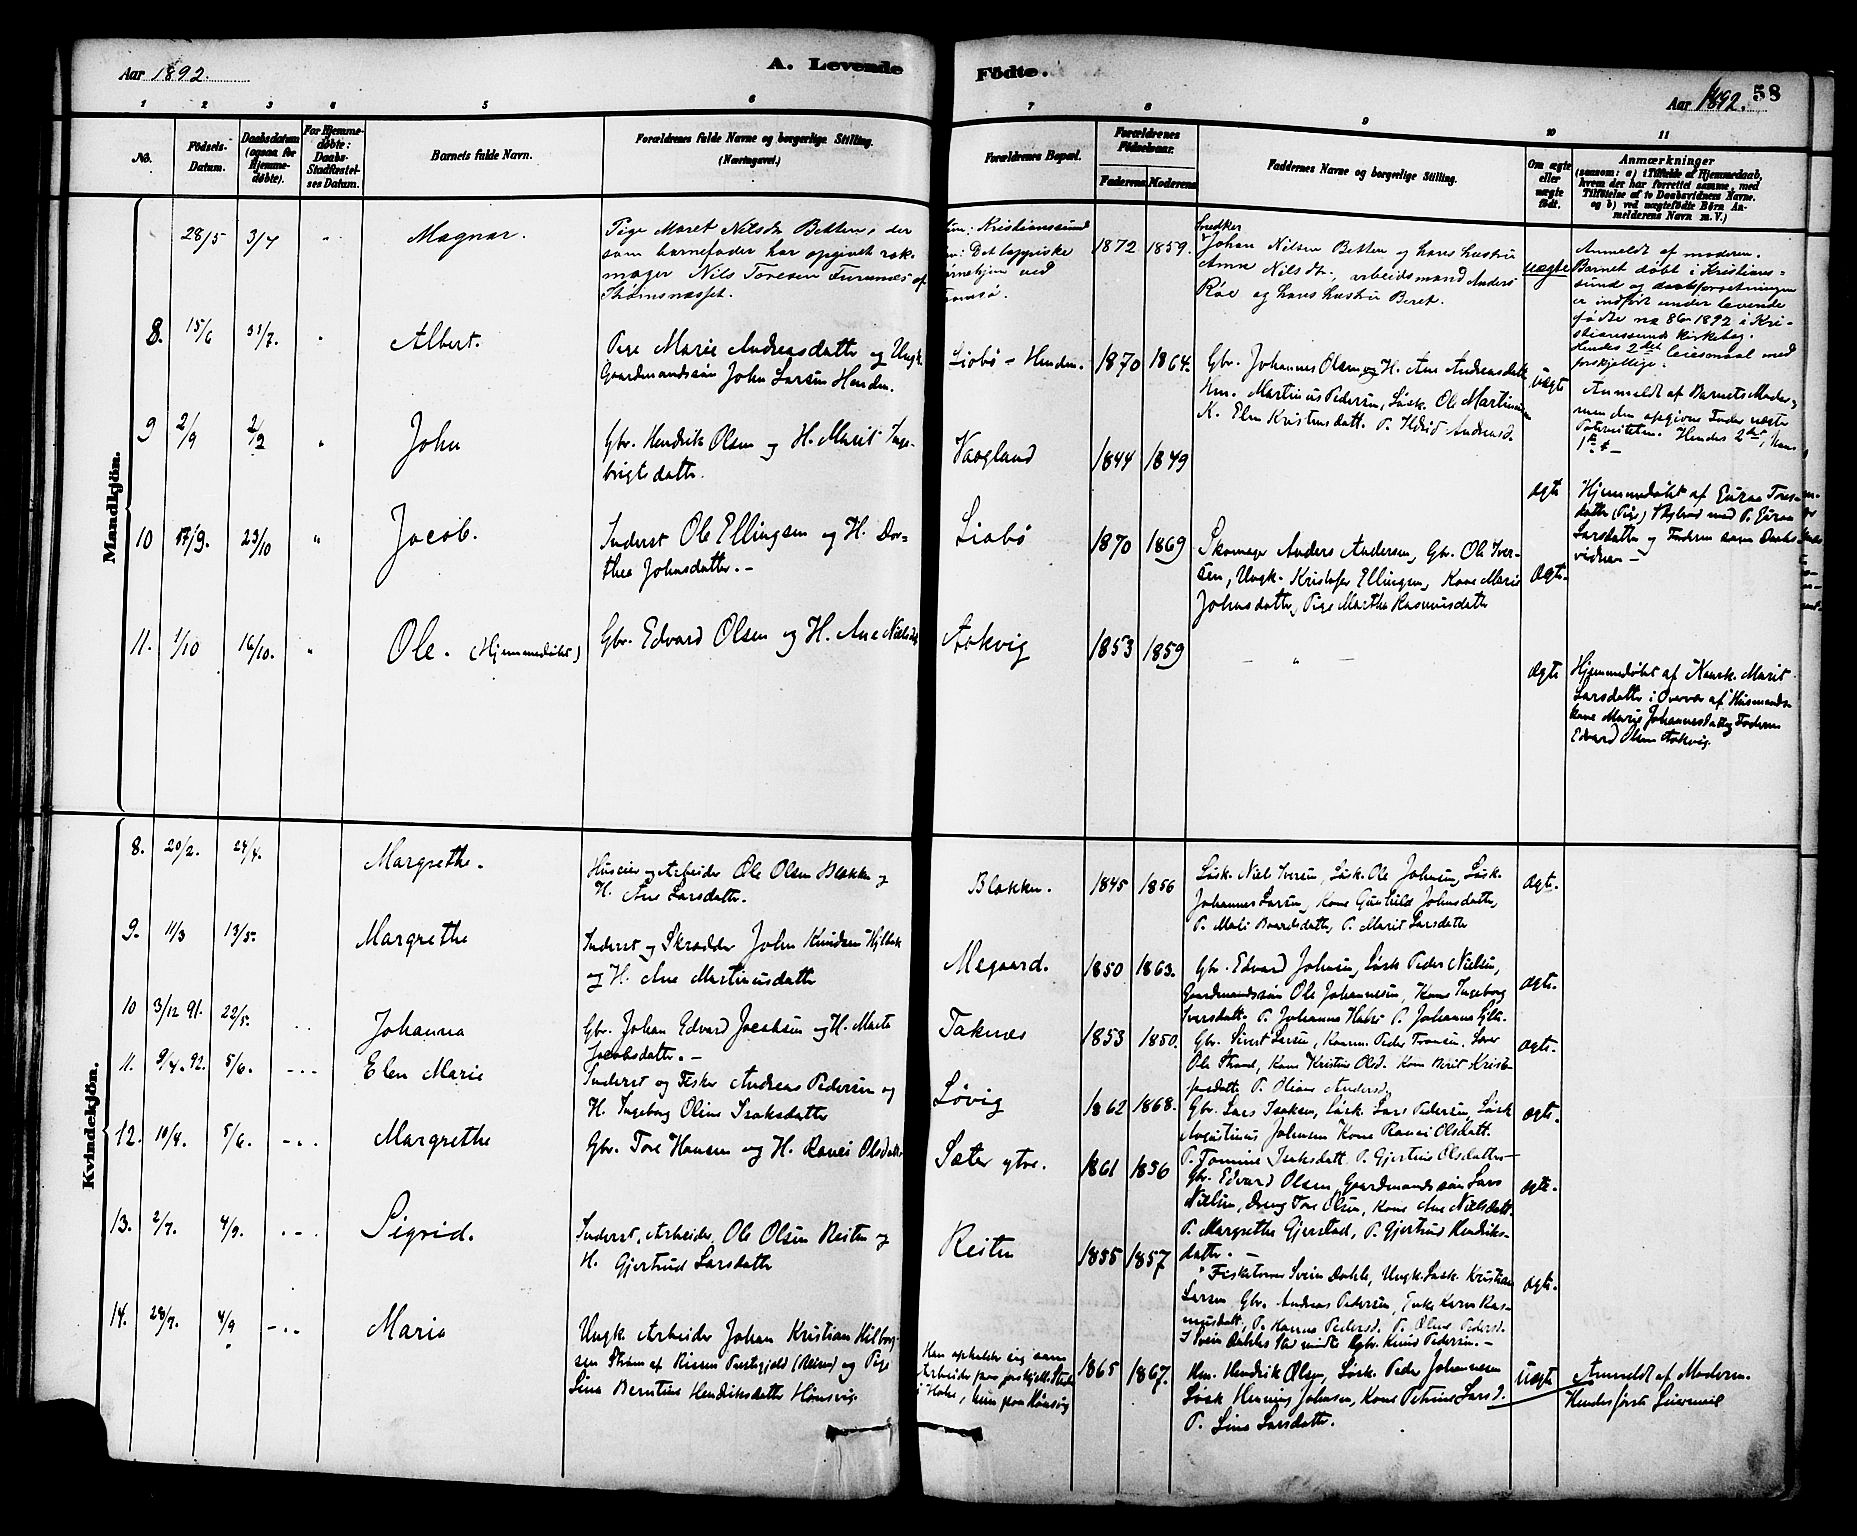 Aar 1892.
A. Levende Födte.
Aar 1892. 58
1 2 3 4 5 6 7 8 9 10 11
No.
Födsels-
Datum.
Daabsdatum
(ogsaa for
Hjemme-
døbte).
For Hjemme-
døbte:
Daabs-
Stadfæstel-
ses Datum.
Barnets fulde Navn.
Forældrenes fulde Navne og borgerlige Stilling.
(Næringsvei.)
Forældrenes Bopæl.
Forældrenes
Födselsaar.
Faderens Moderens
Faddernes Navne og borgerlige Stilling.
Om ægte
eller
uægte
født.
Anmærkninger
(saasom: a) i Tilfælde af Hjemmedaab,
hvem der har forrettet samme, med
Tilføielse af to Daabsvidners Navne.
og b) ved uægtefødte Börn An-
melderens Navn m. V.)
Mandkjön.
28/5 3/7 " Magnar.
Pige Maret Nilsdr Betten; der
som barnefader har opgivet rok-
mager Nils Toresen Furunes af
Strømsnæsset.
Kristianssund
Det lappiske
ved
Tromsø.
1872 1859.
Snedker
Johan Nilsen Betten og hans hustru
Anne Nilsdtr, arbeidsmand Anders
Røe og hans hustru Beret.
uægte
Anmeldt af moderen.
Barnet døbt i Kristians-
sund og daabsforretningen
er indført under levende
fødte no 86 - 1892 i Kri-
stianssunds kirkebog.
Hendes 2det leiermaal med
forskjellige.
8. 15/6 31/7. " Albert.
Pige Marie Andreasdatter og Ungk.
Gaardmandssøn John Larsen Henden.
Liabø - Henden. 1870 1864.
Gbr. Johannes Olsen og H. Ane Andreasdatt.
Hm. Martinus Pedersen, Løsk. Ole Martinusen
K. Elen Kristensdatt. P. Andreasd.
uægte
Anmeldt af Barnets Moder,
men den opgivne Fader nægter
Paterniteten. Hendes 2det, hans
1ste
9 2/9 2/9 " John
Gbr. Hendrik Olsen og H. Marit Inge-
brigtsdatter.
Vaagland 1844 1849
ægte
Hjemmedøbt af Guraa Tores-
datter (Pige) med P. Guraa
Larsdatter og Faderen som Daabs-
vidner —
10 17/9. 23/10 " Jacob.
Inderst Ole Ellingsen og H. Doro-
thea Johnsdatter. —
Liabø 1870 1869
Skomager Anders Andersen, Gbr. Ole Iver-
sen, Ungk. Kristofer Ellingsen, Kone Marie
Johnsdatter, Pige Marthe Rasmusdatter
ægte.
11. 1/10 16/10. " Ole. (Hjemmedøbt)
Gbr. Edvard Olsen og H. Ane Nielsdtr
Aakvig 1853 1859
— " —
ægte
Hjemmedøbt af Kaarsk. Marit
Larsdatter i Overvær af Husmands-
kone Marie Johannesdatter og Faderen
Edvard Olsen Aakvig.
Kvindekjön.
8. 20/2. 24/4. Margrethe.
Huseier og Arbeider Ole Olsen Blekken og
H. Ane Larsdatter.
Blekken. 1845 1856
Løsk. Niels Iversen, Løsk. Ole Johnsen, Løsk.
Johannes Larsen, Kone Gunhild Johnsdatter,
P. Mali Baardsdatter, P. Marit Larsdatter
ægte.
9. 11/3 13/5. Margrethe
Inderst og Skrædder John Knudsen
og H. Ane Martinusdatter
Megaard. 1850 1863.
Gbr. Edvard Johnsen, Løsk Peder Nielsen,
Gaardmandssøn Ole Johannesen, Kone Ingeborg
Iversdatt. P. Johanna P. Johanna
ægte.
10 3/12 91. 22/5. Johanna
Gbr. Johan Edvard Jacobsen og H. Marte
Jacobsdatter. —
Taknes 1853 1850.
Gbr. Sivert Larsen, Peder Tronsen,
Ole Strand, Kone Kristine Olsd. Kone Berit Kristo-
fersdatter P. Oliane Andersd.
ægte.
11. 9/4. 92. 5/6. - " - Elen Marie
Inderst og Fisker Andreas Pedersen og
H. Ingeborg Oline Isaksdatter
Løvig 1862 1868.
Gbr. Lars Isaksen, Løsk. Lars Pedersen, Løsk
Augustinus Johnsen Kone Ranei Olsdatt.
P. Tomine Isaksdatt. P. Gjertine Olsdatter —
ægte.
12. 10/4. 5/6. - " - Margrethe
Gbr. Tore Hansen og H. Ranei Olsdatter
Sæter ytre. 1861 1856
Gbr. Edvard Olsen, Gaardmandssøn Lars
Nielsen, Dreng Tore Olsen, Kone Ane Nielsdatt.
P. Margrethe Gjerstad, P. Gjertrud Hendriks-
datter. —
ægte.
13. 2/7. 4/9. - " - Sigrid.
Inderst, Arbeider, Ole Olsen Reiten og
H. Gjertrud Larsdatter
Reiten 1855 1857
Svein Dahle, Ungk. Løsk. Kristian
Larsen Gbr. Andreas Pedersen, Enke Karen Ras-
musdatt, P. Hanna Pedersd. P. Oline Pedersd.
I Svein Dahles Sted mødte Gbr. Knud Pedersen. —
ægte.
14. 28/7. 4/9 - " - Maria
Ungk. Arbeider Johan Kristian Hilbert-
sen Strøm af Rissen Prestegjeld og Pige
Lina Berntine Hendriksdatter Hønsvig
Han opholder sig som
Arbeider paa forskjell. Steder
i Halse, hun paa Hønsvig
1865 1867.
Hm. Hendrik Olsen, Løsk. Peder Johannesen
Løsk Henning Johnsen, Kone Petrine Larsd.
P. Line Larsdatter.
Uægte
Anmeldt af Moderen.
Hendes første Leiermaal